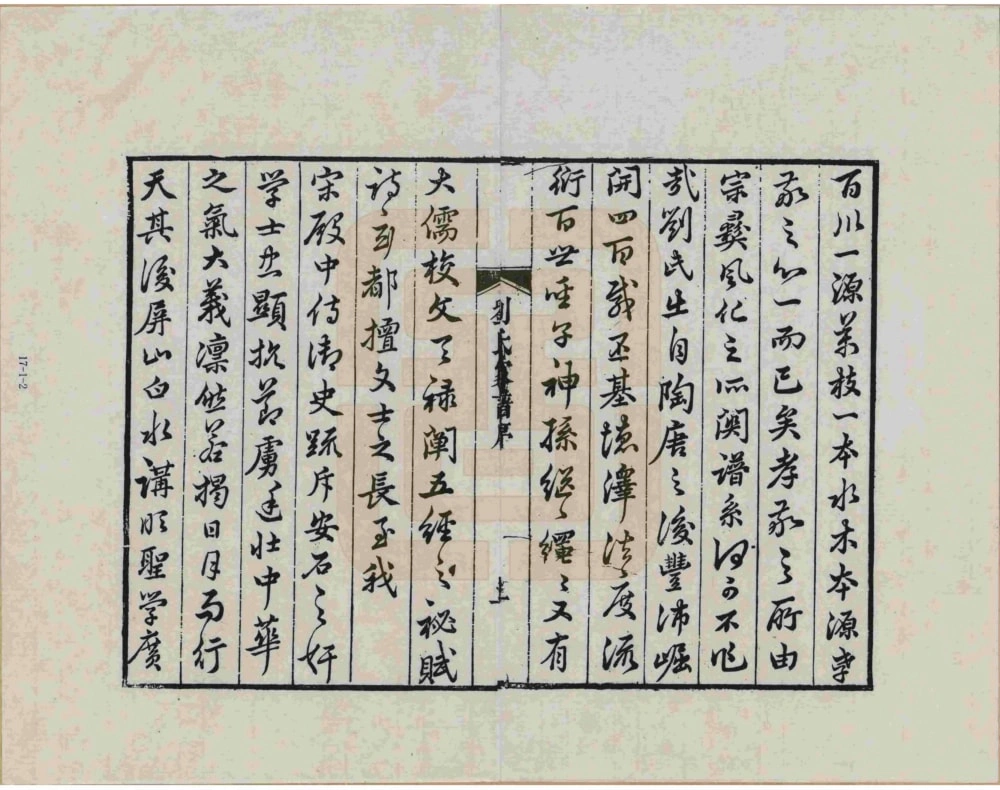 百川一源萬枝一本水木本源孝
敬之心一而已矣孝敬之所由
宗彜風化之所関譜系何可不作
哉劉氏出自陶唐之後豐沛崛
開四百載丕基德澤法度流
衍百世聖子神孫繼〻繩〻又有
劉氏
譜序
大儒校文天祿阐五經之秘賦
詩京都擅文士之長至我
宋殿中侍御史疏斥安石之奸
学士忠顯抗節虜廷壯中華
之氣大義凛然若揭日月而行
天其後屏山白水講明聖学廣
17-1-2